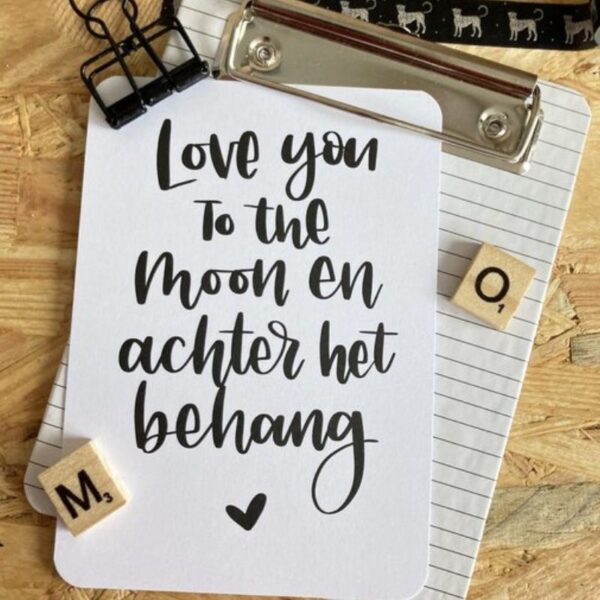 Love you
To the
moon en
achter het
behang
O1
M3